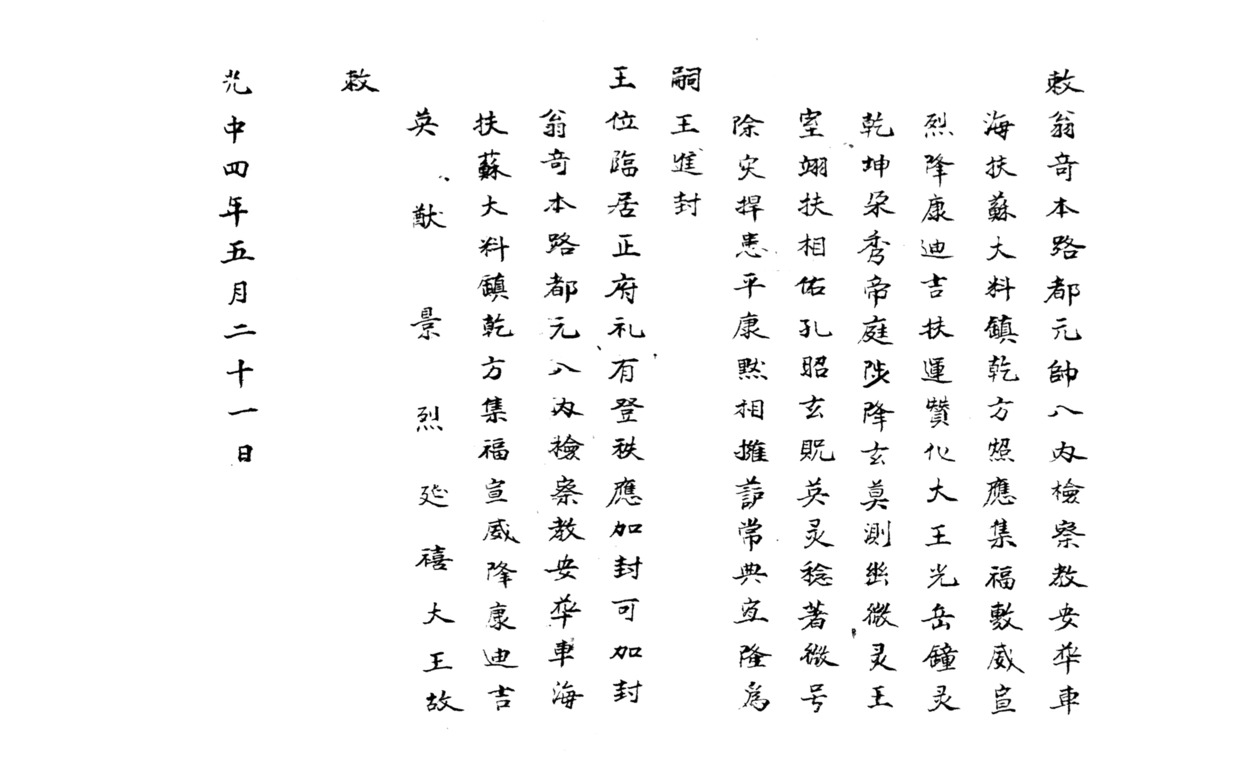 敕翁奇本路都元帥八内檢察教安華車
海扶蘇大料鎮乾方照應集福敷威宣
烈降康迪吉扶運贊化大王光岳鐘灵
乾坤朶秀帝庭陟降玄莫測幽微灵王
室翊扶相佑孔昭玄貺英灵稔著徽号
除灾捍患平康黙相擁護常典宜隆爲
嗣王進封
王位臨居正府礼有登秩應加封可加封
翁奇本路都元八内檢察教安華車海
扶蘇大料鎮乾方集福宣威降康迪吉
英猷景烈延禧大王故
敕
光中四年五月二十一日